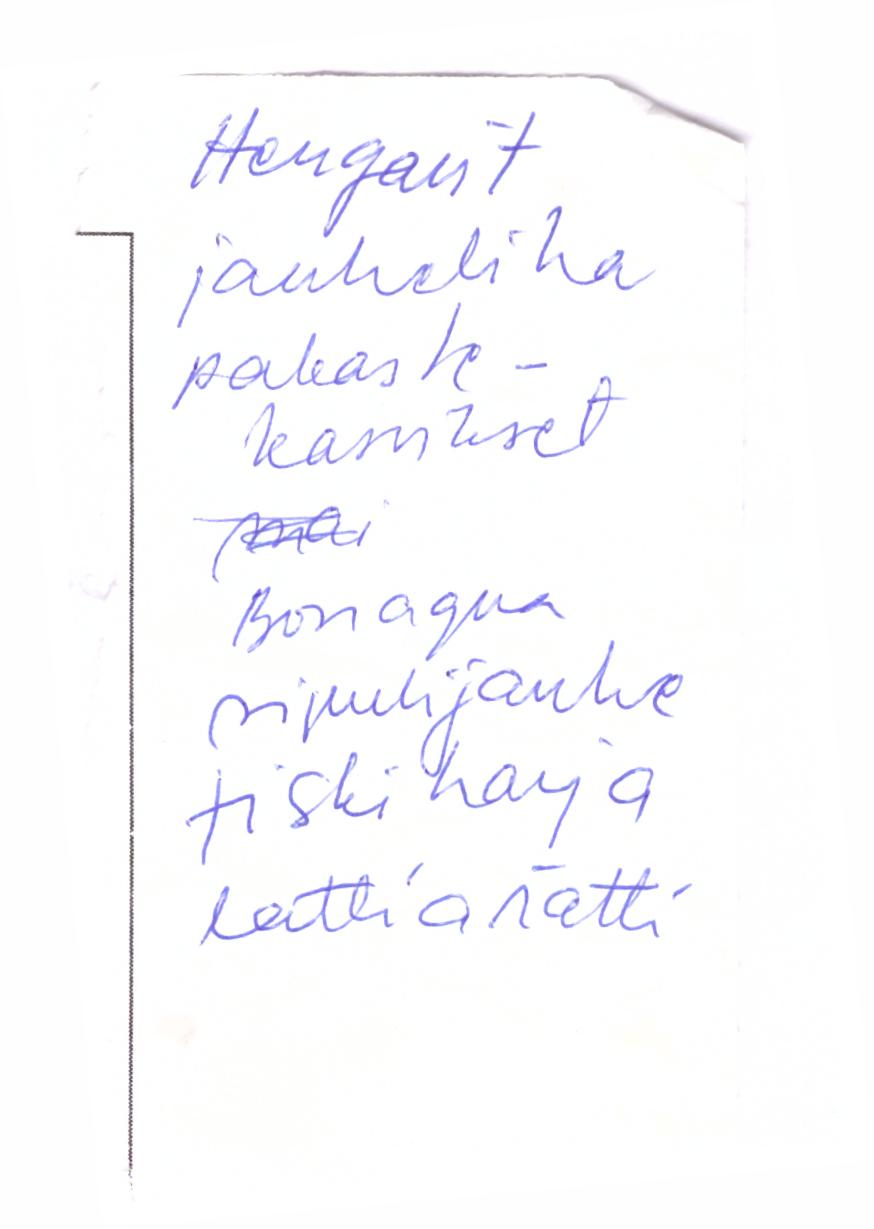 Hengarit
jauheliha
pakaste-
kasvikset
Bonaqua
sipulijauhe
tiskiharja
lattiarätti